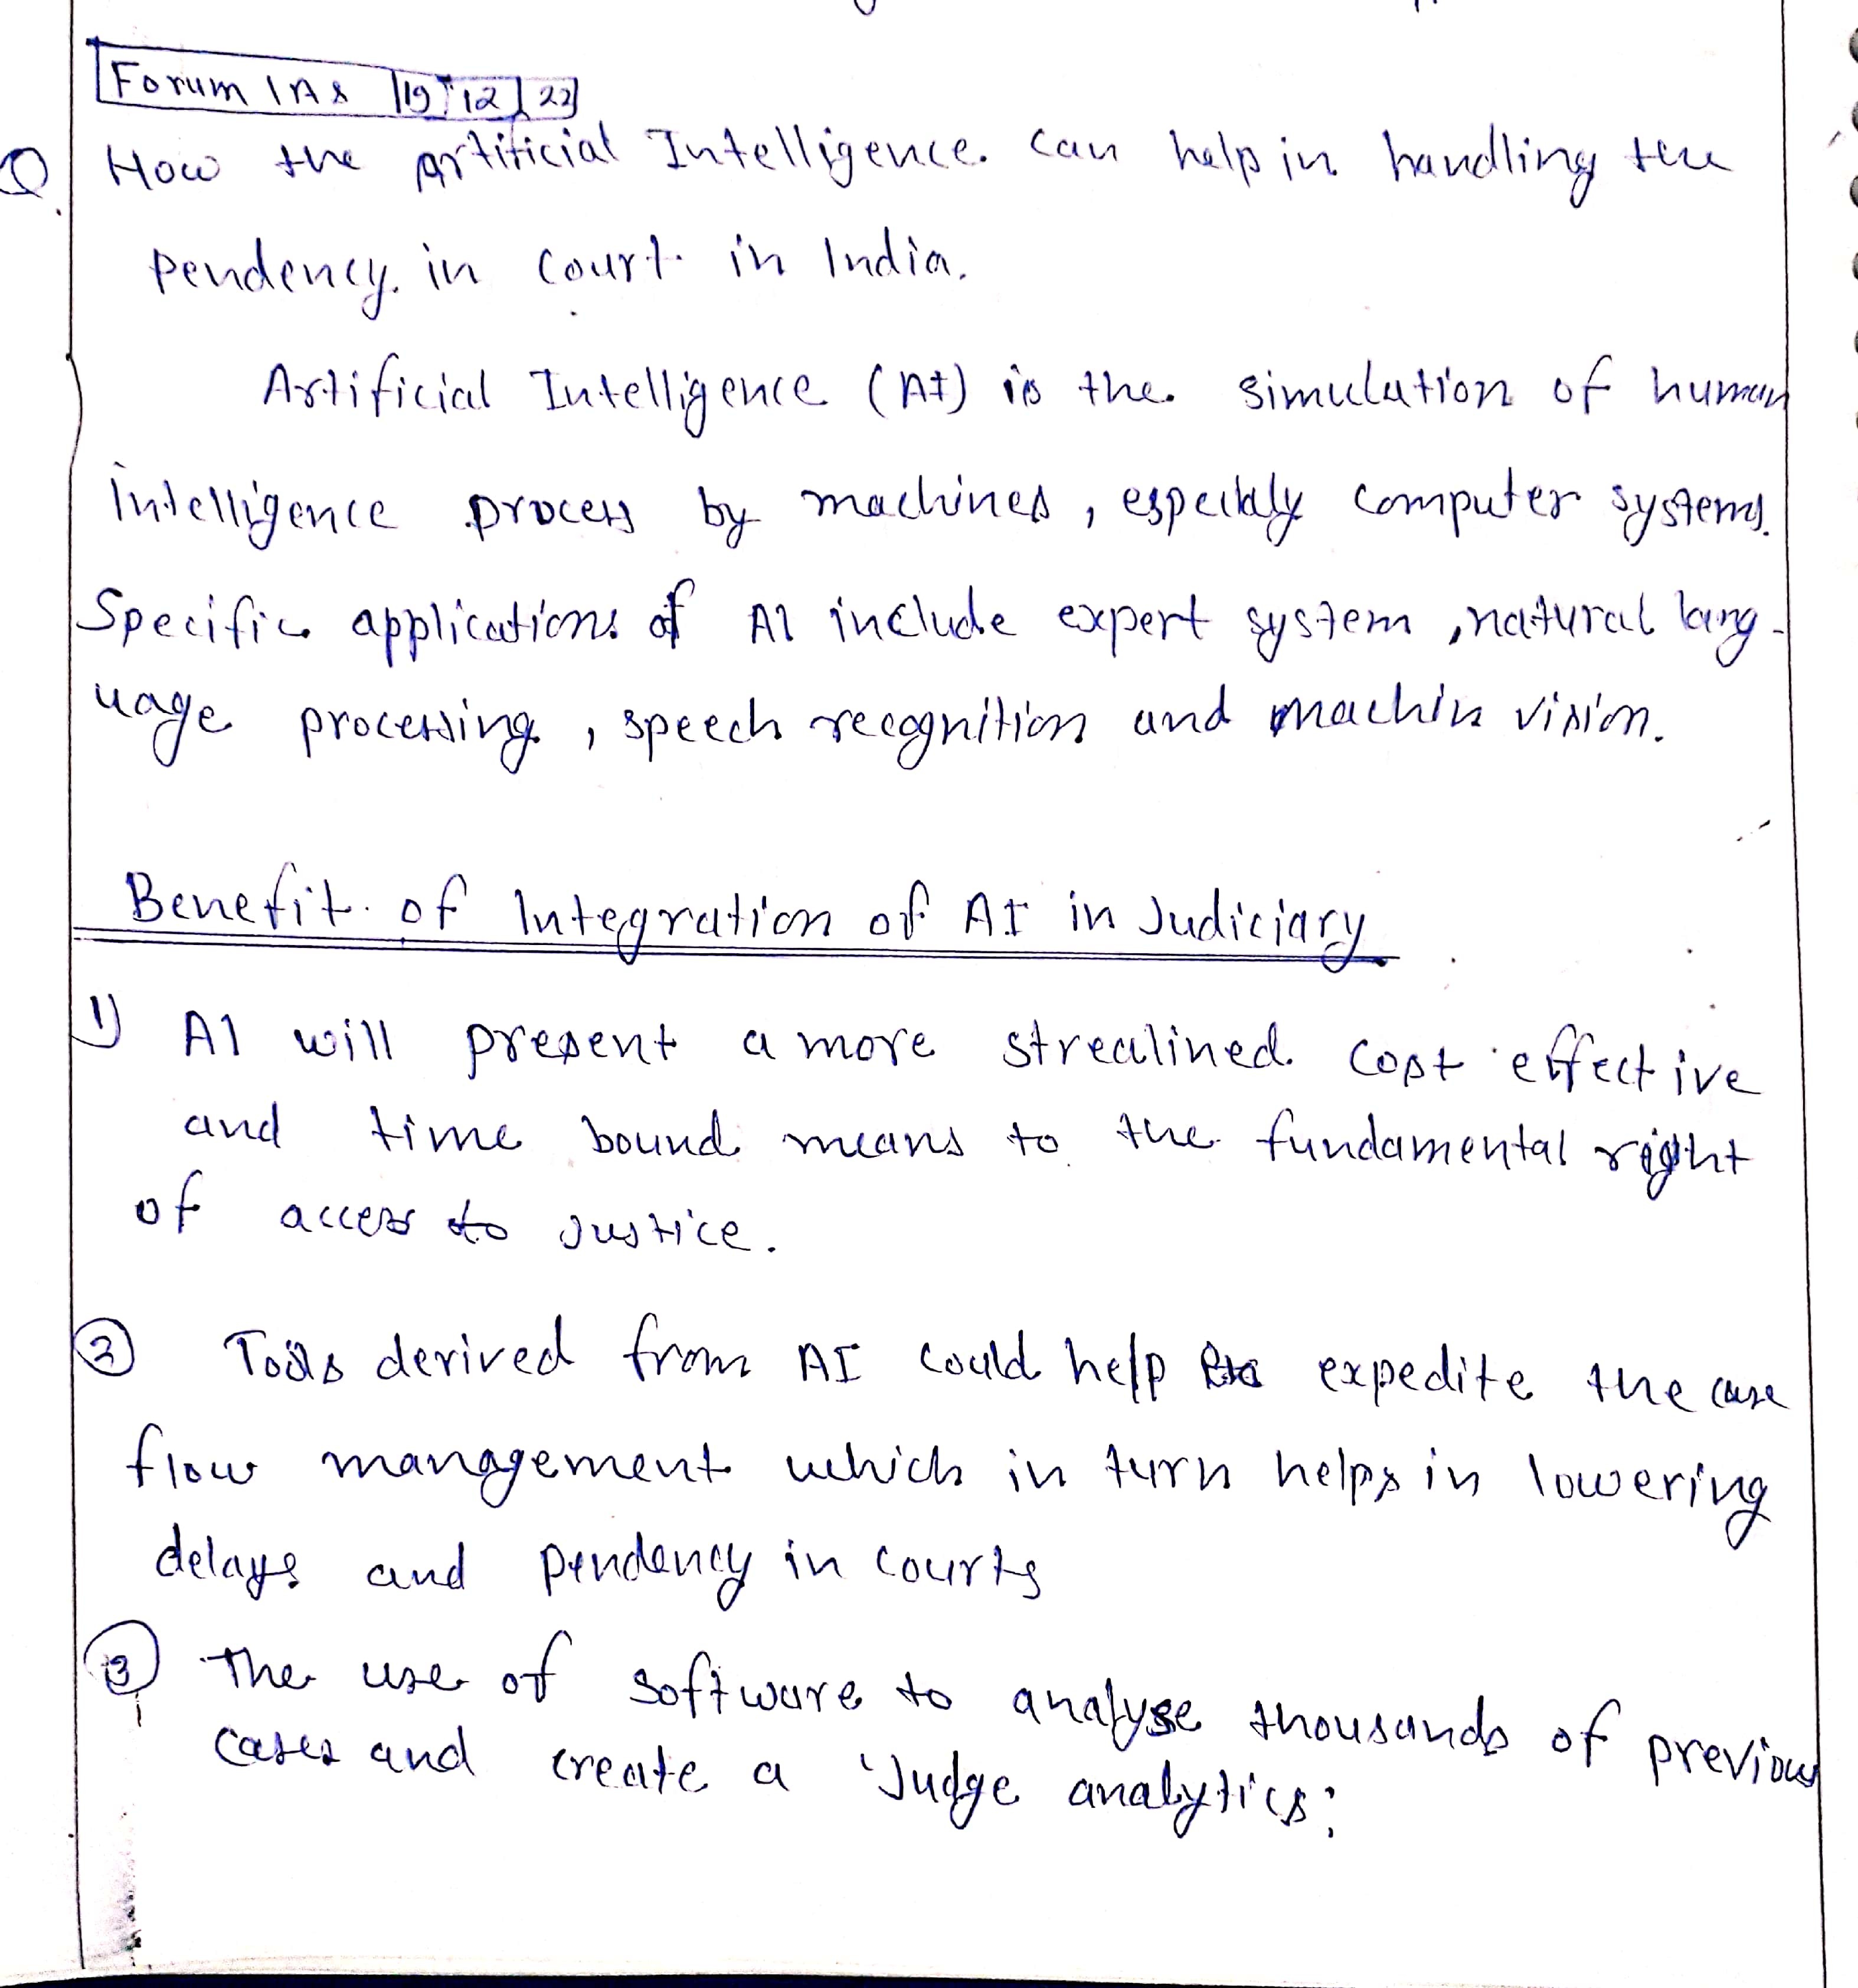 Forum IAS 19 12 22
Q. How the Artificial Intelligence can help in handling the
pendency in court in India.
Artificial Intelligence (AI) is the simulation of human
intelligence process by machines, especially computer systems.
Specific applications of AI include expert system, natural lang-
uage processing, speech recognition and machin vision.
Benefit of Integration of AI in Judiciary
1) AI will present a more strealined cost effective
and time bound means to the fundamental right
of access to Justice.
2 Tools derived from AI could help to expedite the case
flow management which in turn helps in lowering
delays and pendency in courts
3 The use of software to analyse thousands of previous
cases and create a 'Judge analytics: